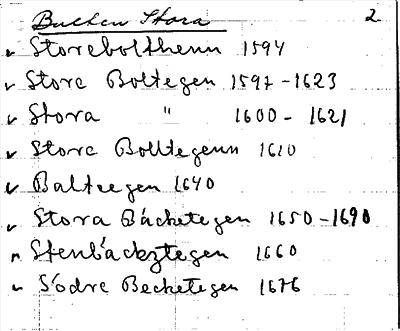 Bucken Stora 2
✓ Storebolthenn 1594
✓ Store Boltegen 1597-1623
✓ Stora " 1600 - 1621
✓ Store Bolltegenn 1610
✓ Balteegen 1640
✓ Stora Bäcketegen 1650-1690
✓ Stenbäckztegen 1660
✓ Södre Becketegen 1676